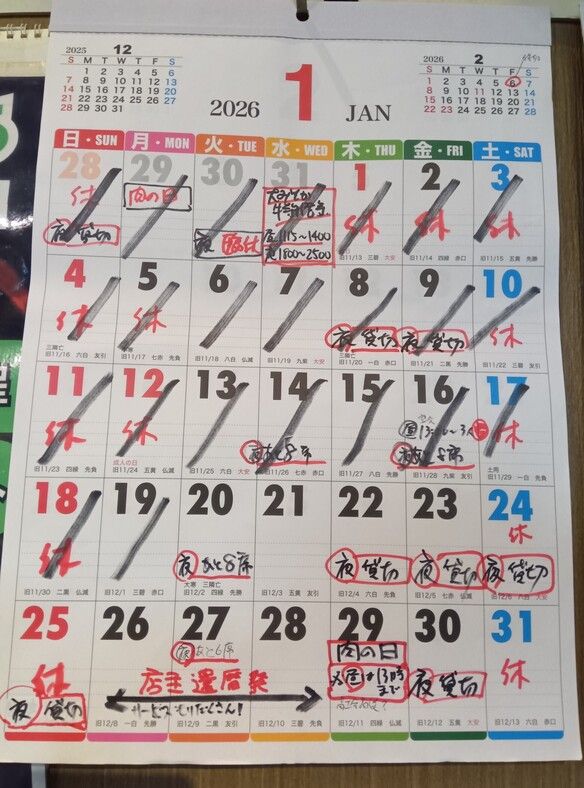 2025 12
S M T W T F S
1 2 3 4 5 6
7 8 9 10 11 12 13
14 15 16 17 18 19 20
21 22 23 24 25 26 27
28 29 30 31
2026 1 JAN
2026 2
S M T W T F S
1 2 3 4 5 6 7
8 9 10 11 12 13 14
15 16 17 18 19 20 21
22 23 24 25 26 27 28
日・SUN 月・MON 火・TUE 水・WED 木・THU 金・FRI 土・SAT
28 29 30 31 1 2 3
休 肉の日 休 休 休
夜 貸切 夜 臨休
昼1115~1400
夜1800~2500
旧11/13 三碧 大安 旧11/14 四緑 赤口 旧11/15 五黄 先勝
4 5 6 7 8 9 10
休 休 夜 貸切 夜 貸切 休
三隣亡 三隣亡
旧11/16 六白 友引 旧11/17 七赤 先負 旧11/18 八白 仏滅 旧11/19 九紫 大安 旧11/20 一白 赤口 旧11/21 二黒 先勝 旧11/22 三碧 友引
11 12 13 14 15 16 17
休 休 夜あと8席 夜あと8席 休
成人の日 土用
旧11/23 四緑 先負 旧11/24 五黄 仏滅 旧11/25 六白 大安 旧11/26 七赤 赤口 旧11/27 八白 先勝 旧11/28 九紫 友引 旧11/29 一白 先負
18 19 20 21 22 23 24
休 夜 あと8席 夜 貸切 夜 貸切 休
夜 貸切
大寒 三隣亡
旧11/30 二黒 仏滅 旧12/1 三碧 赤口 旧12/2 四緑 先勝 旧12/3 五黄 友引 旧12/4 六白 先負 旧12/5 七赤 仏滅 旧12/6 八白 大安
25 26 27 28 29 30 31
休 夜 あと6席 肉の日 休
店主 還暦祭
サービスもりだくさん!
夜 貸切 13時まで 夜 貸切
旧12/8 一白 先勝 旧12/9 二黒 友引 旧12/10 三碧 先負 旧12/11 四緑 仏滅 旧12/12 五黄 大安 旧12/13 六白 赤口